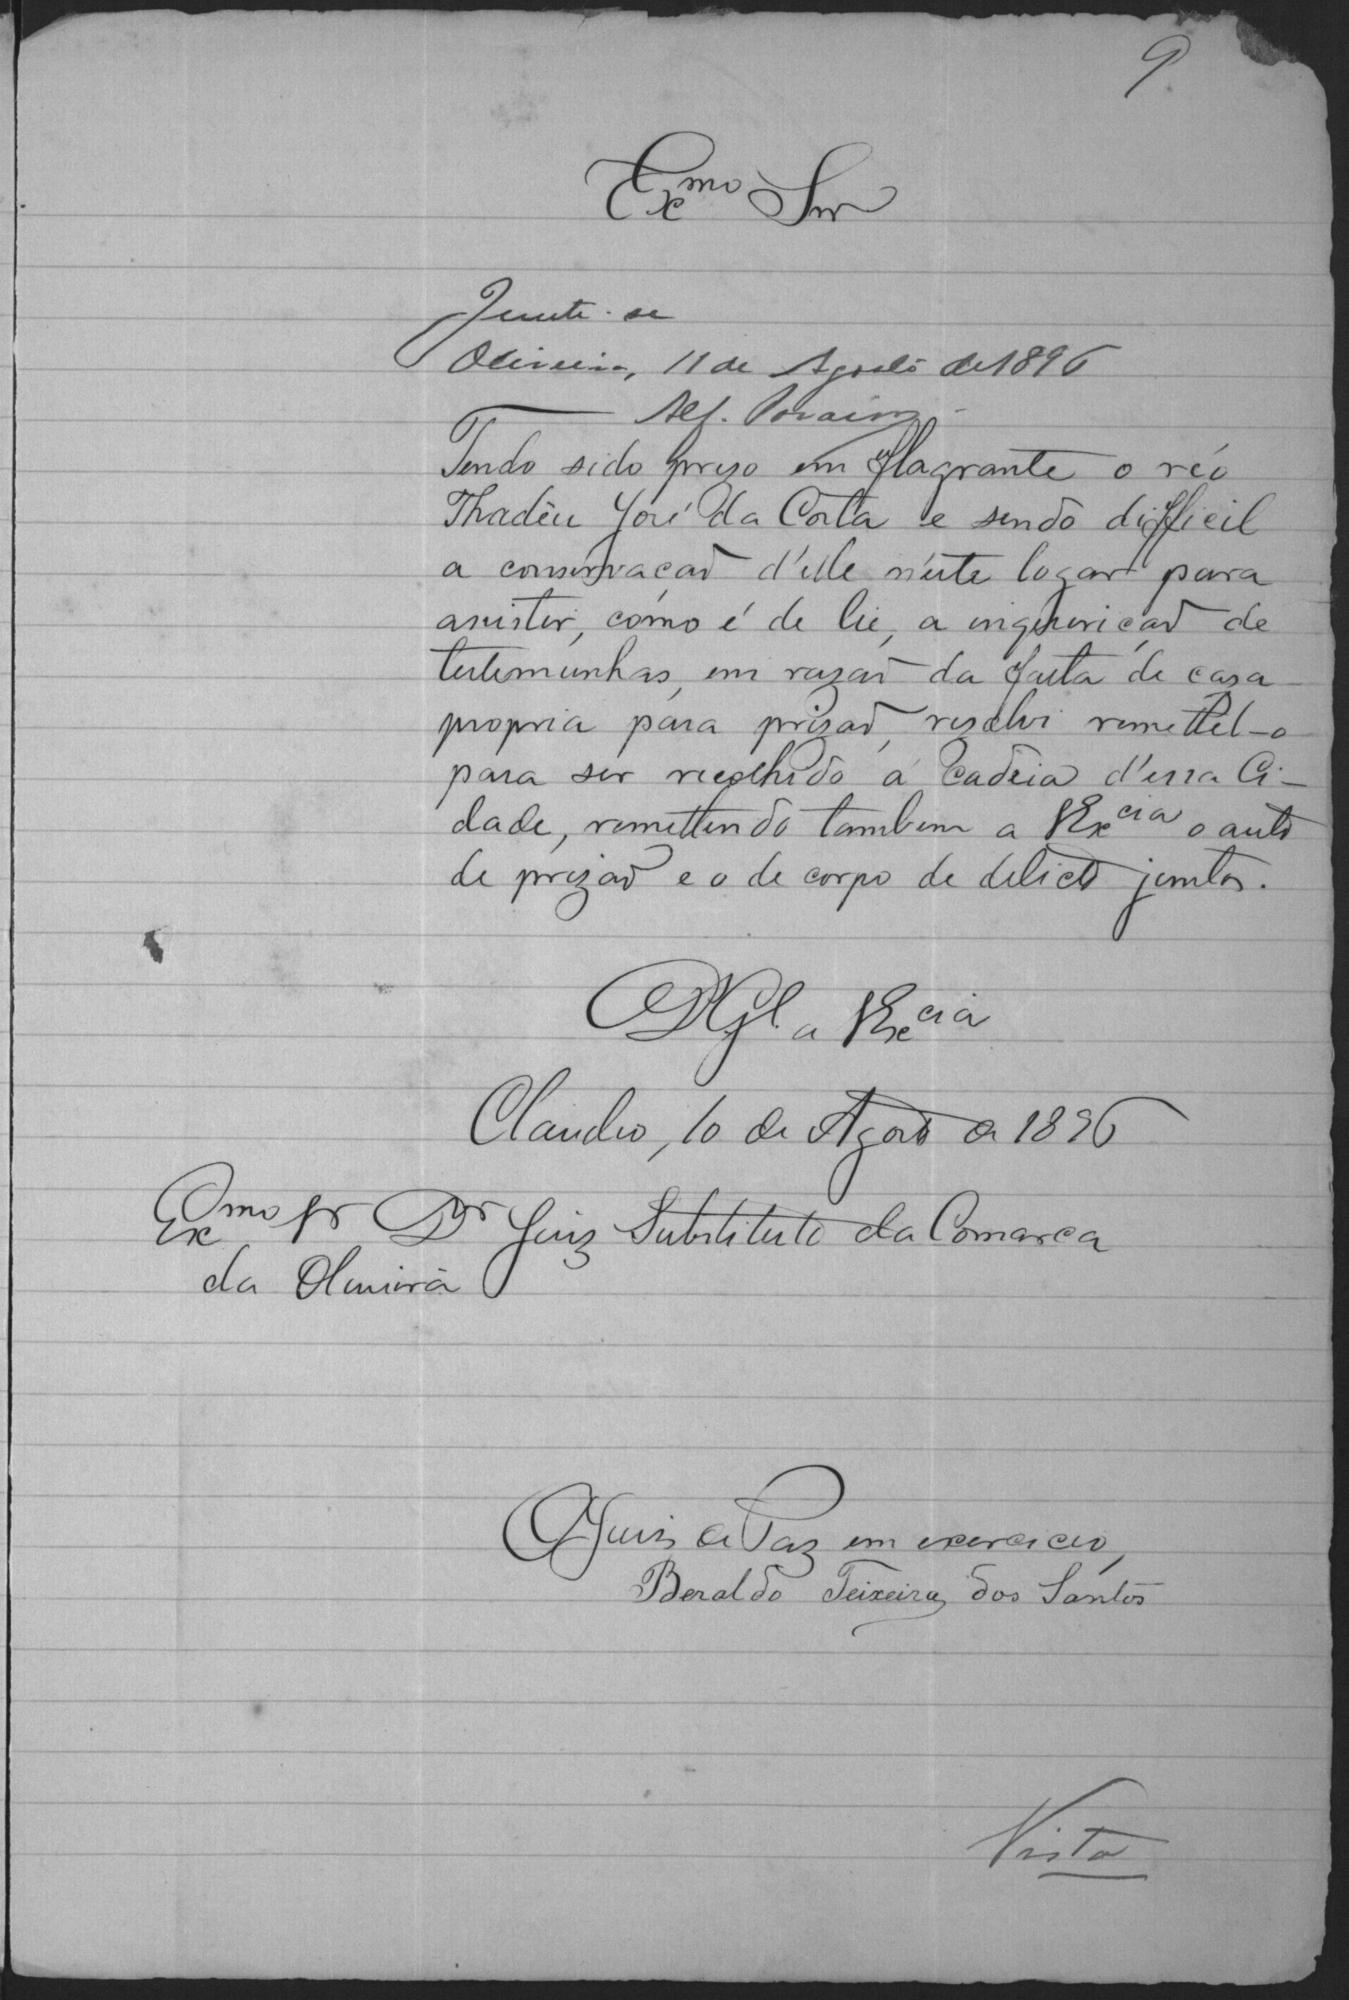 9
Exmo Snr
Junte-se
Oliveira, 11 de Agosto de 1896
Alf.
Tendo sido prezo em flagrante o réo
Thadêu José da Costa e sendo difficil
a conservacaõ d'elle n'este logar para
assistir, como é de lei, a inquiricaõ de
testemunhas, em razaõ da falta de casa
propria para prizaõ, rezolvi remettel-o
para ser recolhido á Cadêia d'essa Ci-
dade, remettendo tambem a VExcia o auto
de prizaõ e o de corpo de delicto juntos.
a VExcia
Claudio, 10 de Agosto de 1896
Exmo Sr Dr Juiz Substituto da Comarca
da Oliveira
O Juiz de Paz em exercicio,
Beraldo Teixeira dos Santos
Vista